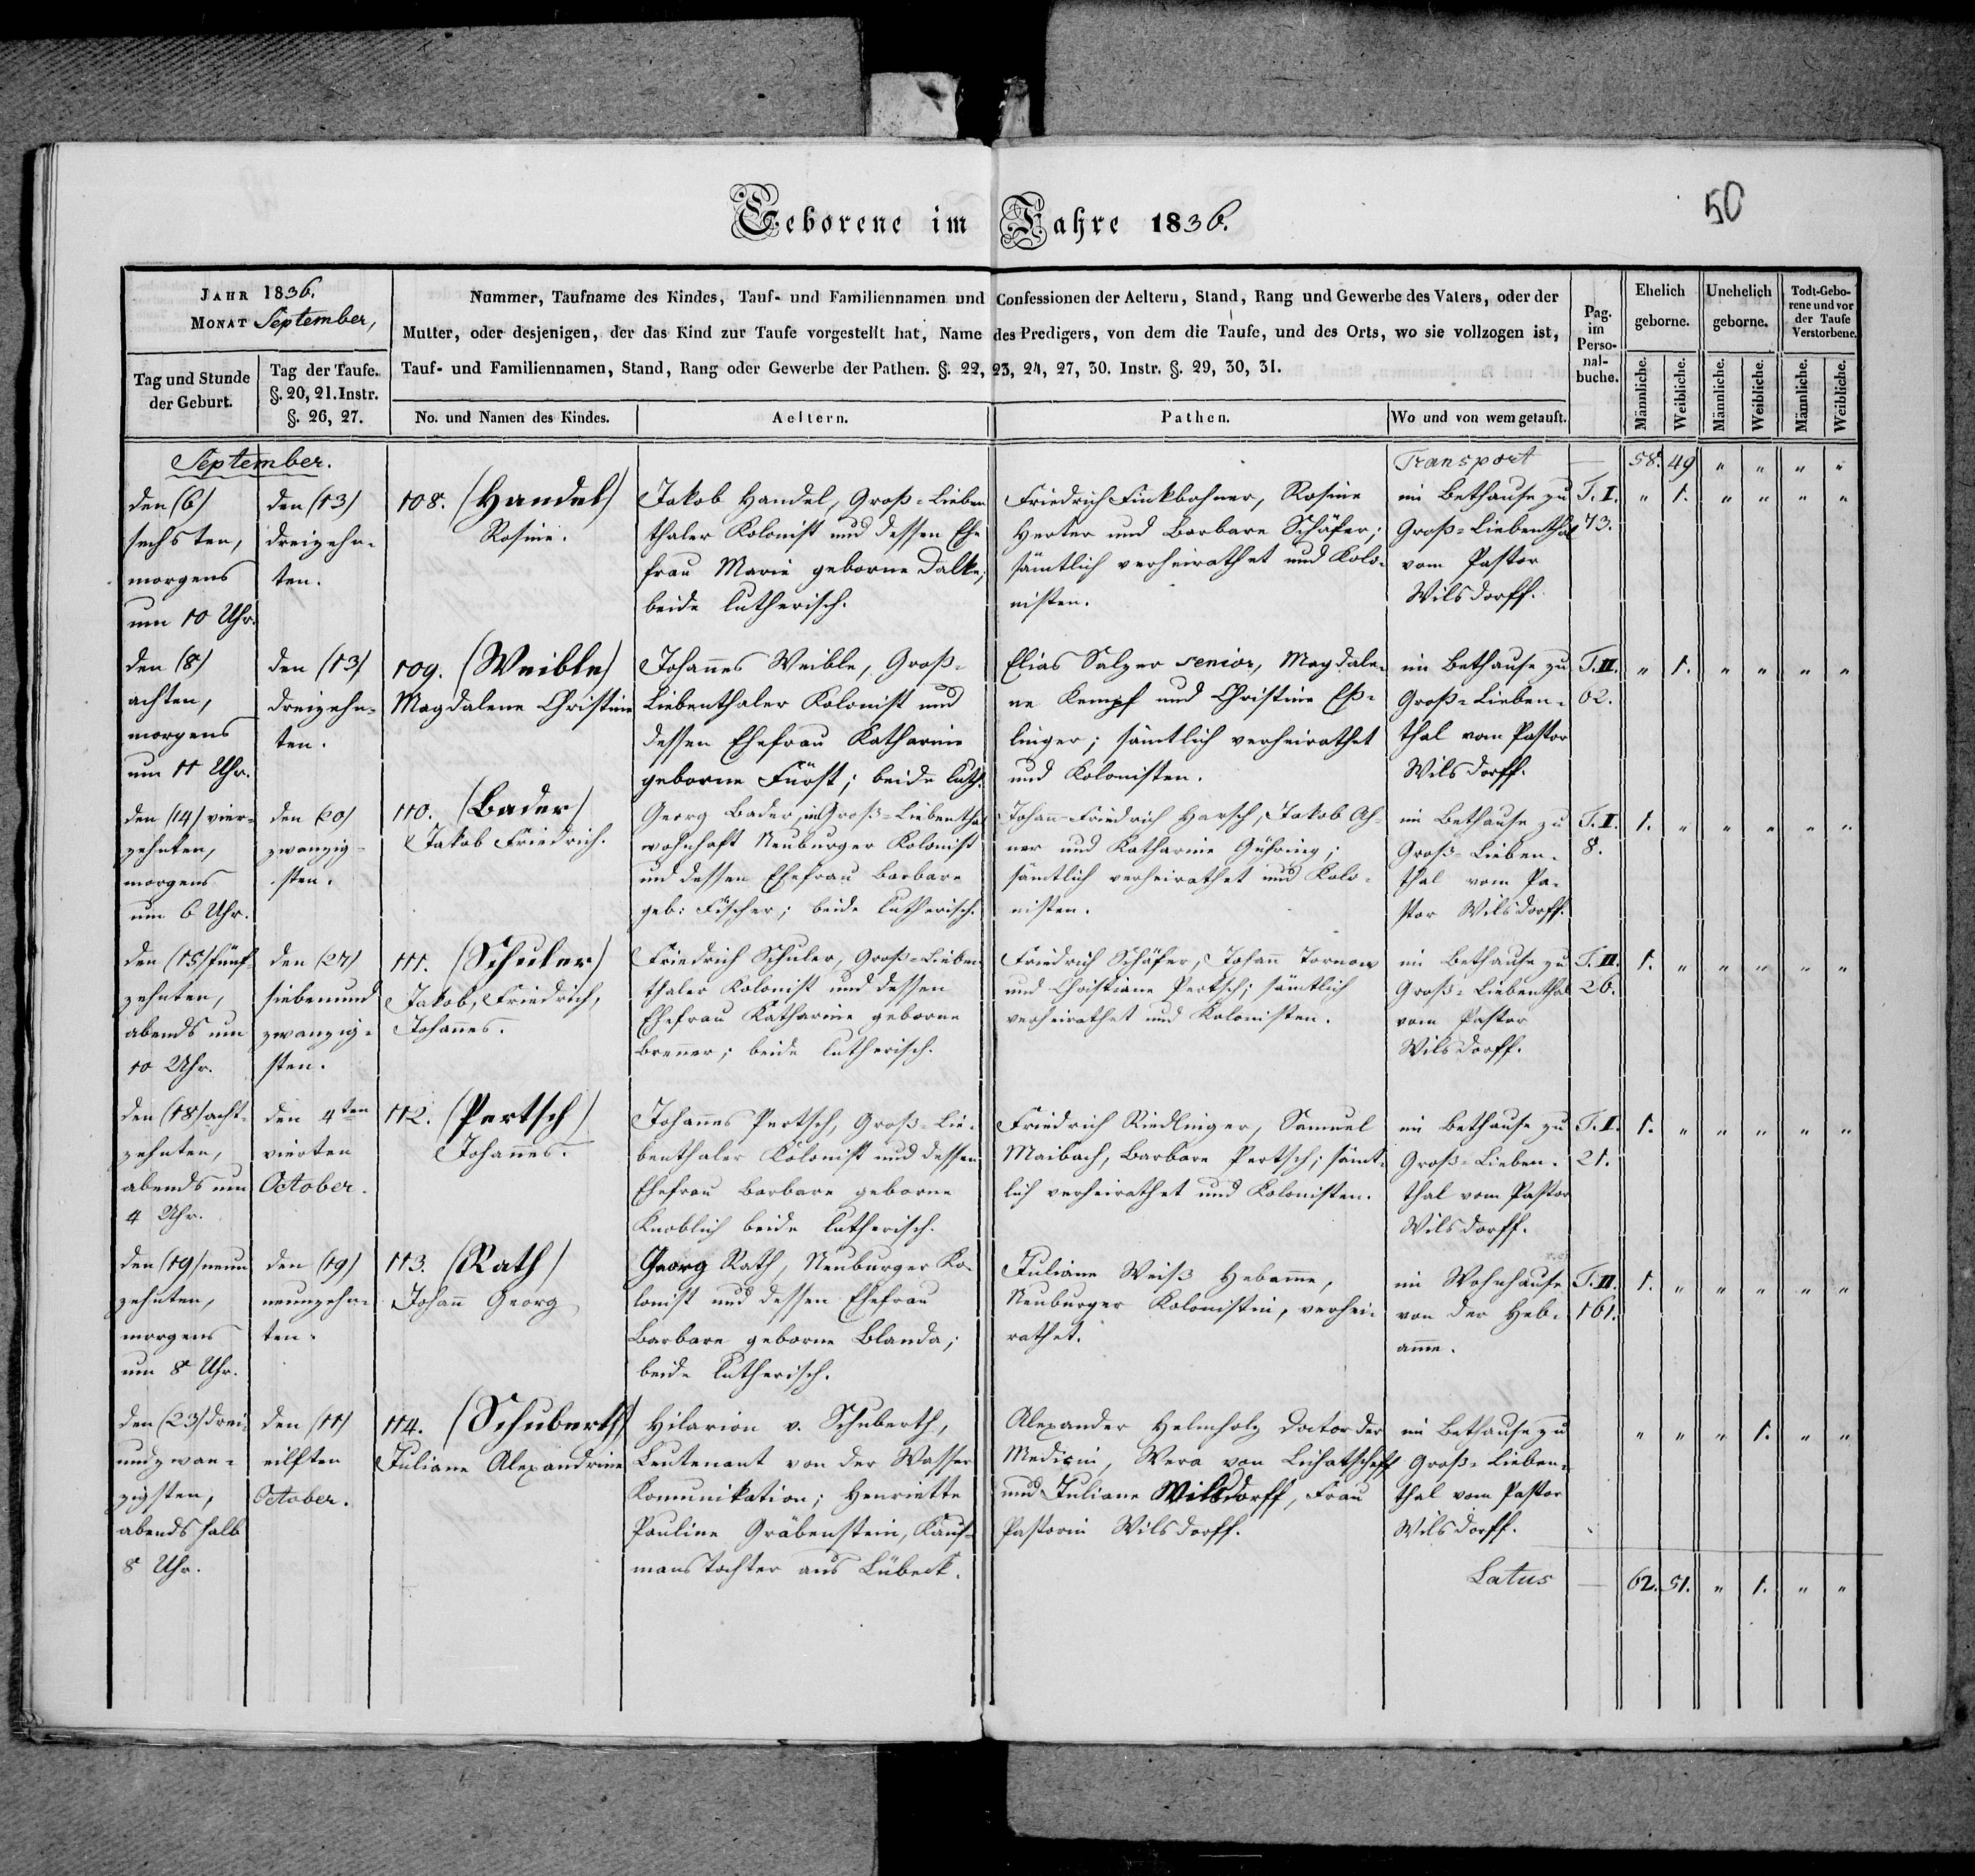 50
Geborene im Jahre 1836.
JAHR 1836.
MONAT September,
Tag und Stunde
der Geburt.
Tag der Taufe.
§. 20, 21. Instr.
§. 26, 27.
Nummer, Taufname des Kindes, Tauf- und Familiennamen und Confessionen der Aeltern, Stand, Rang und Gewerbe des Vaters, oder der
Mutter, oder desjenigen, der das Kind zur Taufe vorgestellt hat, Name des Predigers, von dem die Taufe, und des Orts, wo sie vollzogen ist,
Tauf- und Familiennamen, Stand, Rang oder Gewerbe der Pathen. §. 22, 23, 24, 27, 30. Instr. §. 29, 30, 31.
No. und Namen des Kindes.
Aeltern.
Pathen.
Wo und von wem getauft.
Pag.
im
Perso-
nal-
buche.
Ehelich
geborne.
Unehelich
geborne.
Todt-Gebo-
rene und vor
der Taufe
Verstorbene.
Männliche.
Weibliche.
Männliche.
Weibliche.
Männliche.
Weibliche.
September.
Transport — 58. 49 " " " "
den (6)
sechsten,
morgens
um 10 Uhr.
den (13)
dreizehn-
ten.
108. (Handel)
Rosine.
Jakob Handel, Groß-Lieben
thaler Kolonist und dessen Ehe
frau Marie geborne Dalke;
beide lutherisch.
Friedrich Finkbohner, Rosine
Herter und Barbara Schäfer;
sämtlich verheirathet und Kolo-
nisten.
im Bethause zu
Groß-Liebenthal
vom Pastor
Wilsdorff.
T. I.
73.
" 1. " " " "
den (8)
achten,
morgens
um 11 Uhr.
den (13)
dreizehn-
ten.
109. (Weible)
Magdalene Christine
Johanes Weible, Groß-
Liebenthaler Kolonist und
dessen Ehefrau Katharine
geborne Fürst; beide luth.
Elias Salzer senior, Magdale-
ne Kempf und Christine Eß-
linger; sämtlich verheirathet
und Kolonisten.
im Bethause zu
Groß-Lieben-
thal vom Pastor
Wilsdorff.
T. II.
62.
" 1. " " " "
den (14) vier-
zehnten,
morgens
um 6 Uhr.
den (20)
zwanzig-
sten.
110. (Bader)
Jakob Friedrich.
Georg Bader, in Groß-Liebenthal
wohnhaft Neuburger Kolonist
und dessen Ehefrau Barbara
geb: Fischer; beide lutherisch.
Johan Friedrich Harsch, Jakob Oh-
ner und Katharine Gühring;
sämtlich verheirathet und Kolo-
nisten.
im Bethause zu
Groß-Lieben-
thal vom Pa-
stor Wilsdorff.
T. I.
8.
1. " " " " "
den (15) fünf-
zehnten,
abends um
10 Uhr.
den (27)
siebenund
zwanzig-
sten.
111. (Schuler)
Jakob, Friedrich,
Johanes.
Friedrich Schuler, Groß-Lieben
thaler Kolonist und dessen
Ehefrau Katharine geborne
Brenner; beide lutherisch.
Friedrich Schäfer, Johan Tornow
und Christiane Pertsch; sämtlich
verheirathet und Kolonisten.
im Bethause zu
Groß-Liebenthal
vom Pastor
Wilsdorff.
T. II.
26.
1. " " " " "
den (18) acht-
zehnten,
abends um
4 Uhr.
den 4ten
vierten
October.
112. (Pertsch)
Johanes.
Johanes Pertsch, Groß-Lie-
benthaler Kolonist und dessen
Ehefrau Barbara geborne
Knoblich beide lutherisch.
Friedrich Riedlinger, Samuel
Maibach, Barbara Pertsch; sämt-
lich verheirathet und Kolonisten.
im Bethause zu
Groß-Lieben-
thal vom Pastor
Wilsdorff.
T. I.
21.
1. " " " " "
den (19) neun
zehnten,
morgens
um 8 Uhr.
den (19)
neunzehn-
ten.
113. (Rath)
Johan Georg
Georg Rath, Neuburger Ko-
lonist und dessen Ehefrau
Barbara geborne Blanda;
beide lutherisch.
Juliane Weiß Hebame,
Neuburger Kolonistin, verhei-
rathet.
im Wohnhause
von der Heb-
ame.
T. II.
161.
1. " " " " "
den (23) drei-
undzwan-
zigsten,
abends halb
8 Uhr.
den (11)
eilften
October.
114. (Schuberth)
Juliane Alexandrine
Hilarion v. Schuberth,
Leutenant von der Wasser
Komunikation; Henriette
Pauline Gräbenstein, Kauf-
manstochter aus Lübeck.
Alexander Helmholz Doctor der
Medicin, Wera von Lichatscheff
und Juliane Wilsdorff, Frau
Pastorin Wilsdorff.
im Bethause zu
Groß-Lieben-
thal vom Pastor
Wilsdorff.
" " " 1. " "
Latus — 62. 51. " 1. " "